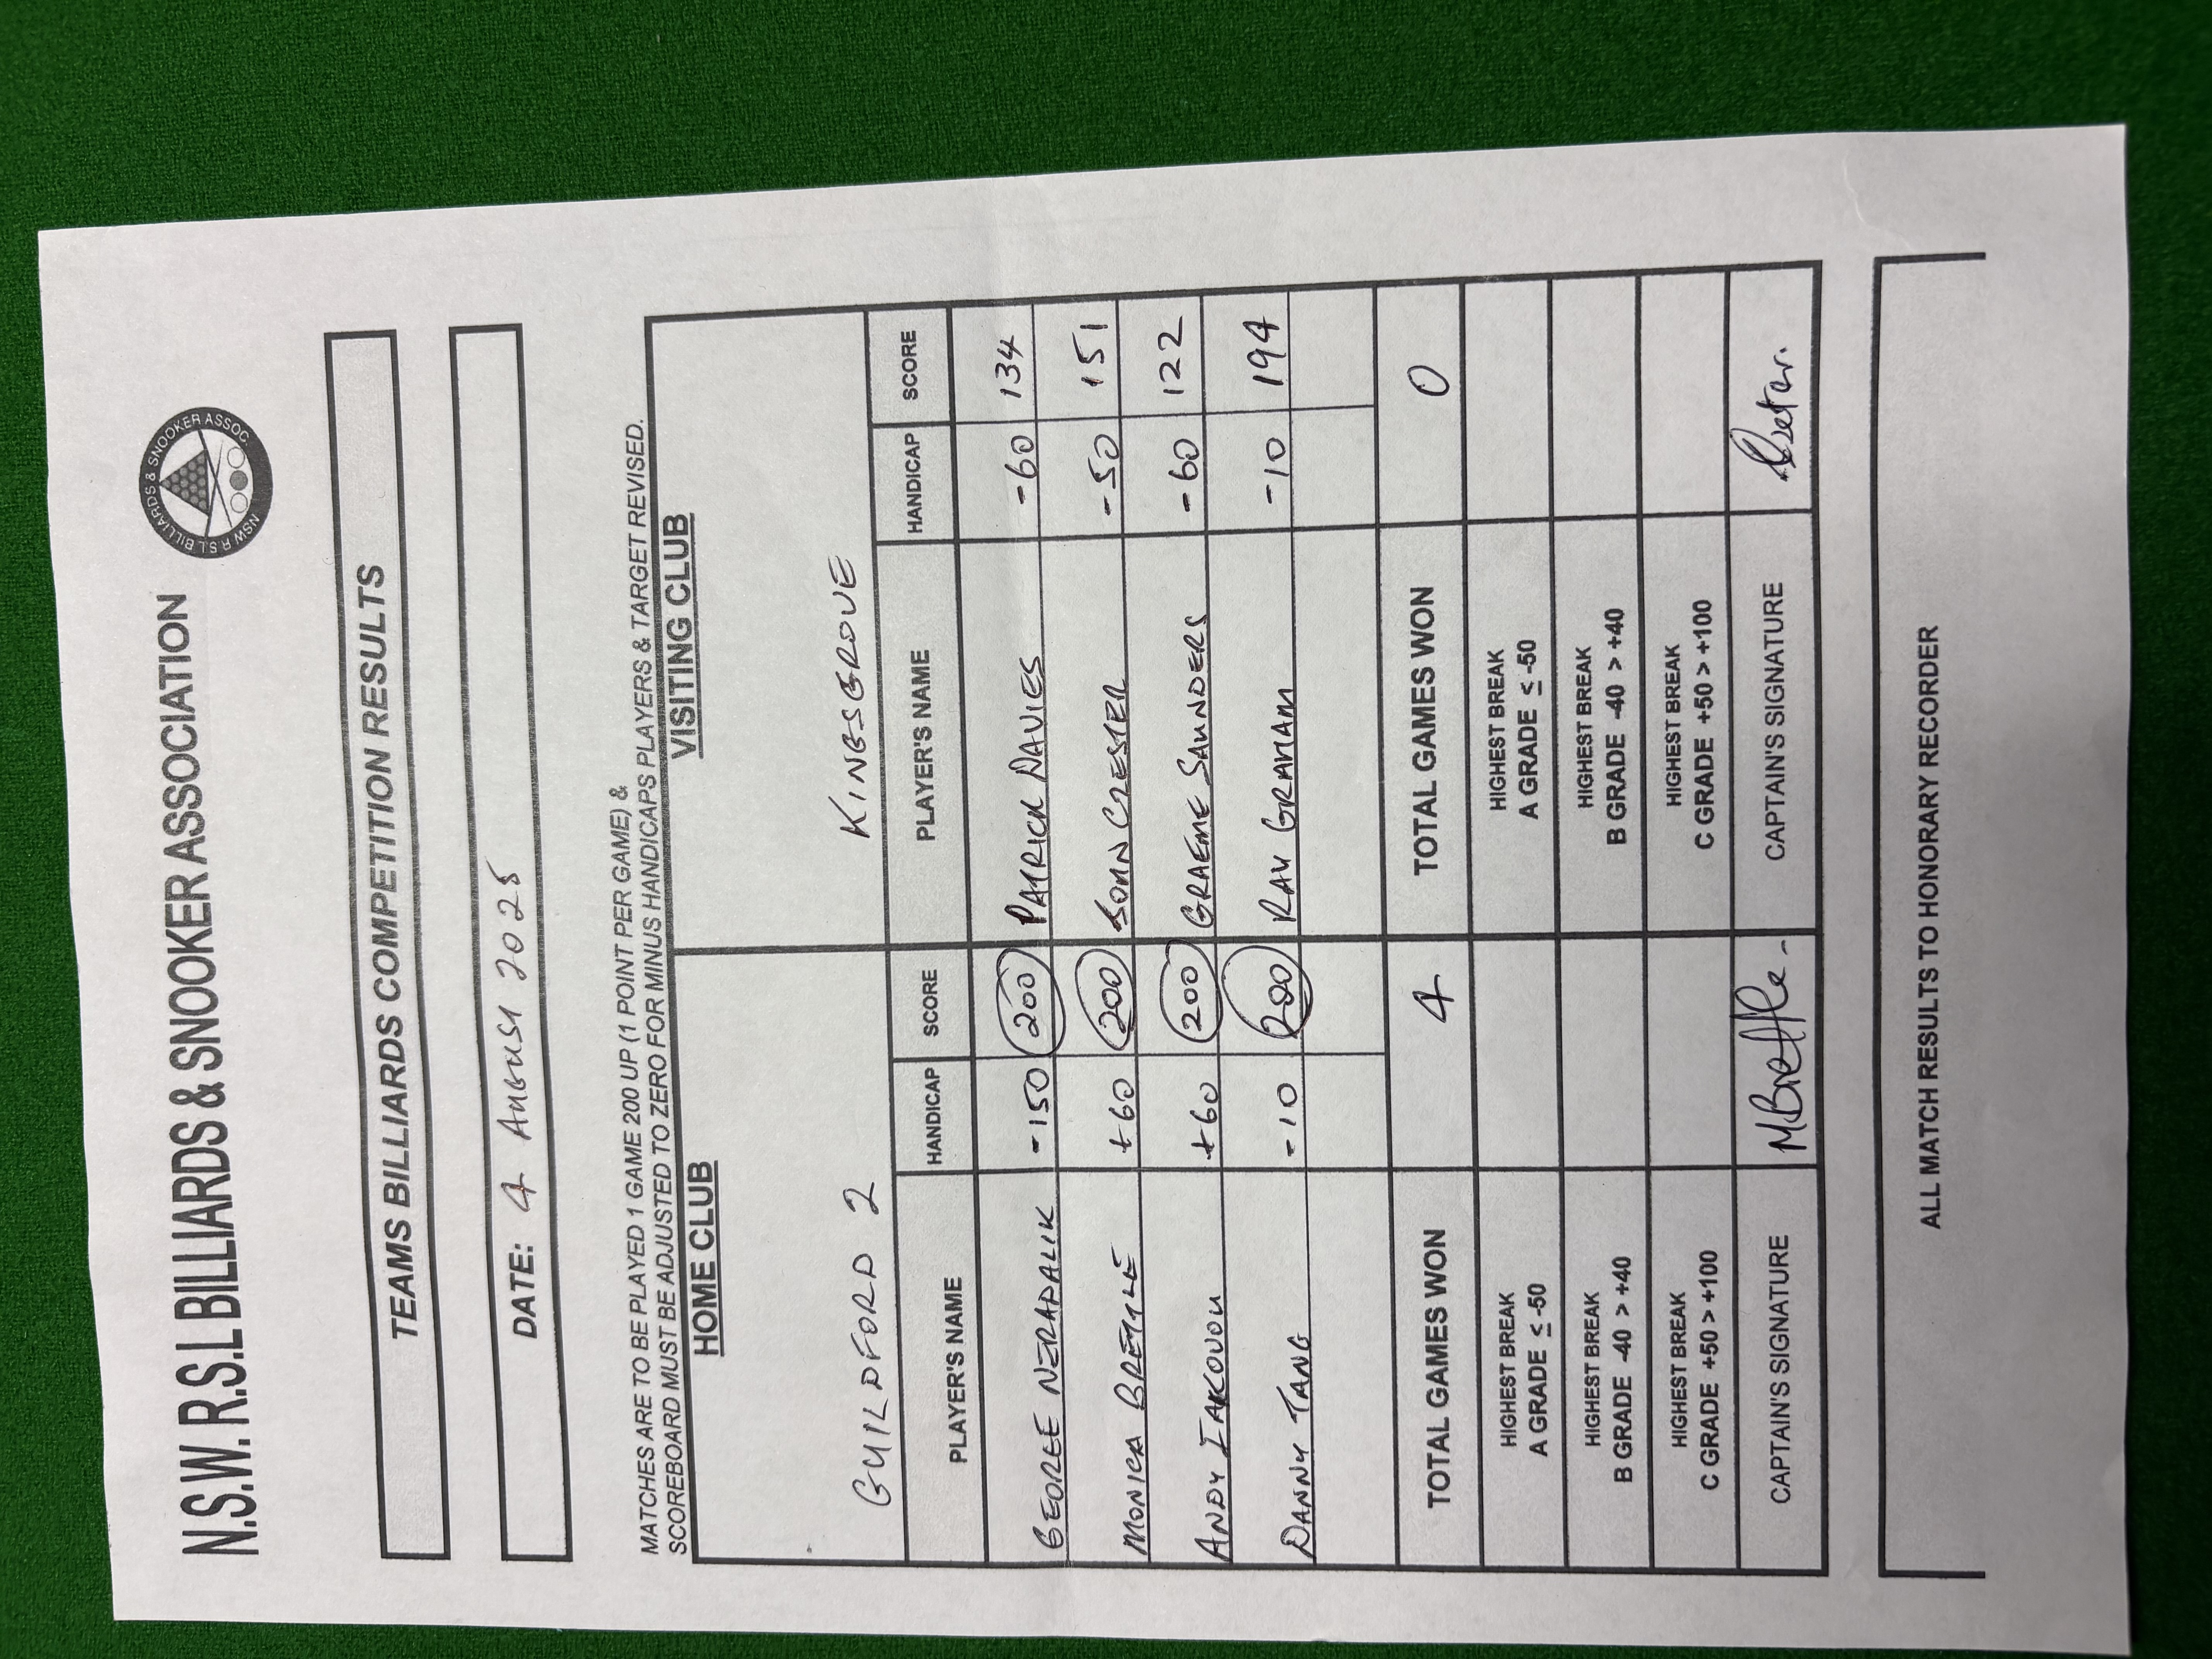 N.S.W. R.S.L BILLIARDS & SNOOKER ASSOCIATION
NSW R.S.L BILLIARDS & SNOOKER ASSOC.
TEAMS BILLIARDS COMPETITION RESULTS
DATE: 4 AUGUST 2025
MATCHES ARE TO BE PLAYED 1 GAME 200 UP (1 POINT PER GAME) &
SCOREBOARD MUST BE ADJUSTED TO ZERO FOR MINUS HANDICAPS PLAYERS & TARGET REVISED.
HOME CLUB VISITING CLUB
GUILDFORD 2 KINGSGROVE
PLAYER'S NAME HANDICAP SCORE PLAYER'S NAME HANDICAP SCORE
GEORGE NERADALIK -150 200 PATRICK DAVIES -60 134
MONICA BRETTLE +60 200 JOHN CZESTER -50 151
ANDY IAKOVOU +60 200 GRAEME SAUNDERS -60 122
DANNY TANG -10 200 RAY GRAHAM -10 194
TOTAL GAMES WON 4 TOTAL GAMES WON 0
HIGHEST BREAK HIGHEST BREAK
A GRADE ≤ -50 A GRADE ≤ -50
HIGHEST BREAK HIGHEST BREAK
B GRADE -40 > +40 B GRADE -40 > +40
HIGHEST BREAK HIGHEST BREAK
C GRADE +50 > +100 C GRADE +50 > +100
CAPTAIN'S SIGNATURE MBrettle CAPTAIN'S SIGNATURE
ALL MATCH RESULTS TO HONORARY RECORDER